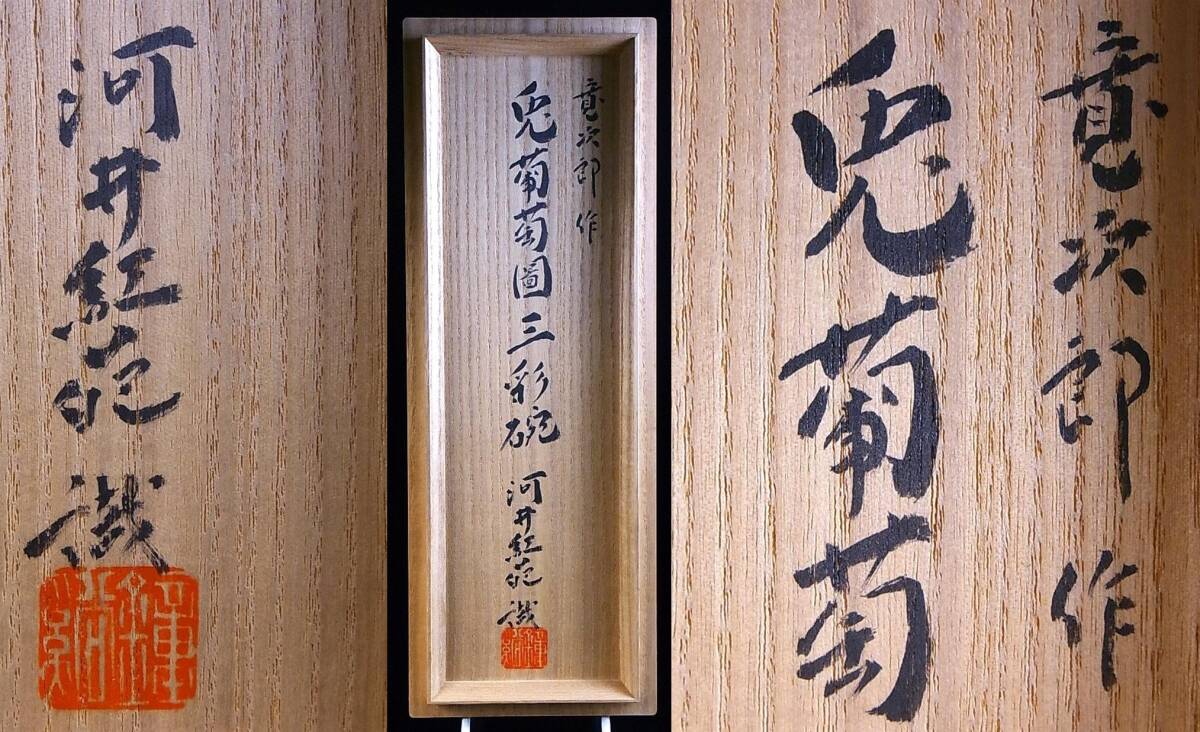 寛次郎 作
兎葡萄
寛次郎 作
兎葡萄圖三彩碗 河井紅葩 識
河井紅葩 識